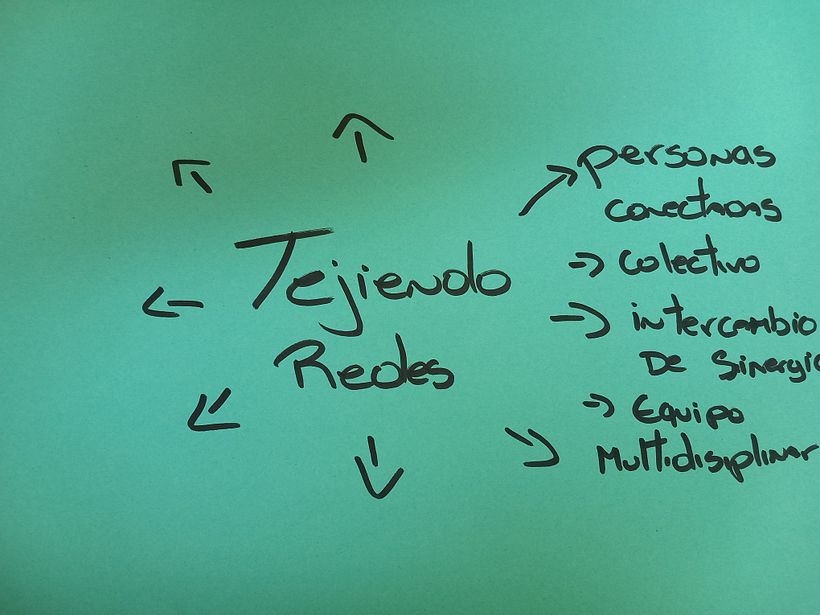 Tejiendo
Redes
personas
conectadas
colectivo
intercambio
De Sinergia
Equipo
Multidisiplinar